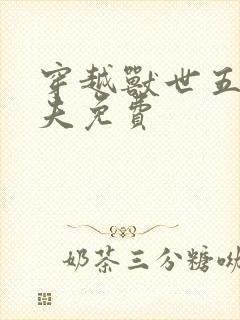 穿越獸世五
夫免費
奶茶三分糖呦